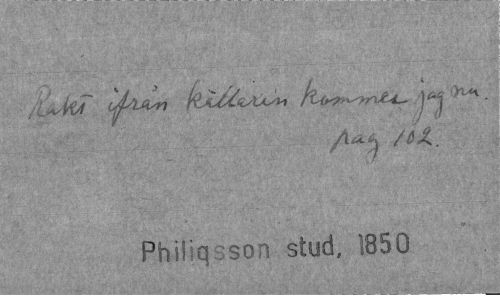 Rakt ifrån källarin kommer jag nu.
pag 102.
Philiqsson stud, 1850